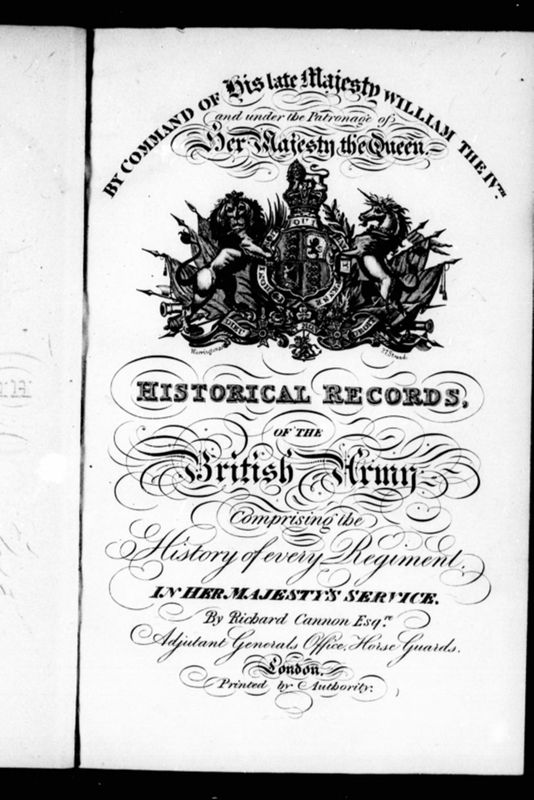 BY COMMAND OF His late Majesty WILLIAM THE IV.TH
and under the Patronage of
Her Majesty the Queen.
HONI SOIT QUI MAL Y PENSE
DIEU ET MON DROIT
Harrington
HISTORICAL RECORDS,
OF THE
British Army
Comprising the
History of every Regiment
IN HER MAJESTY'S SERVICE.
By Richard Cannon Esq.re
Adjutant Generals Office, Horse Guards.
London.
Printed by Authority: